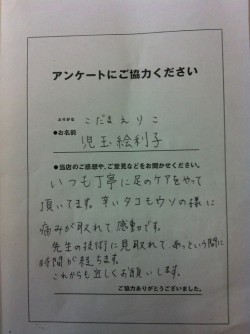 アンケートにご協力ください
ふりがな
こだまえりこ
●お名前
児玉絵利子
●当店のご感想や、ご意見などをお聞かせください。
いつも丁寧に足のケアをやって
頂いてます。辛いタコもウソの様に
痛みが取れて感動です。
先生の技術に見取れて あっという間に
時間が経ちます。
これからも宜しくお願いします。
ご協力ありがとうございました。